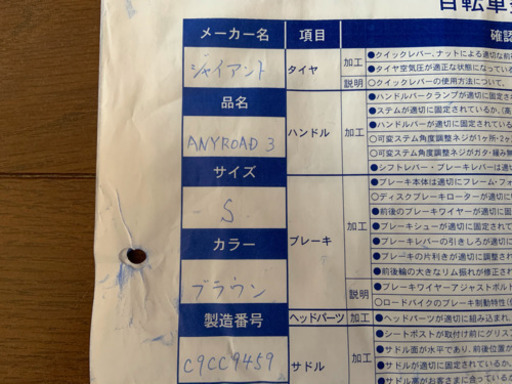 自転車
メーカー名 項目 確認
ジャイアント タイヤ 加工 ●クイックレバー、ナットによる適切な前
●タイヤ空気圧が適正な状態になっている
説明 ○クイックレバーの使用方法について。
品名 ハンドル 加工 ●ハンドルバークランプが適切に固定さ
●ステムが適切に固定されているか。
ANYROAD 3 ●ハンドルバーが適切に固定されている
○可変ステム角度調整ネジが1ヶ所・2ヶ
○可変ステム角度調整ネジがガタ・緩み無
サイズ ●シフトレバー・ブレーキレバーは適
S ブレーキ 加工 ●ブレーキ本体は適切にフレーム・フォ
○ディスクブレーキローターが適切に
●前後のブレーキワイヤーが適切に固定
カラー ●ブレーキシューが適切に固定されて
●ブレーキレバーの引きしろが適切に
●ブレーキの片利きが適切に調整され
ブラウン ●前後輪の大きなリム振れが修正され
説明 ●ブレーキワイヤーアジャストボルト
○ロードバイクのブレーキ制動特性
製造番号 ヘッドパーツ 加工 ●ヘッドパーツが適切に組み込まれ
C9CC9459 サドル 加工 ●シートポストが取付け前にグリス
●サドル面が水平であり、前後位置が
●サドルが適切に固定されている
●サドル高がお客さまに合っているか